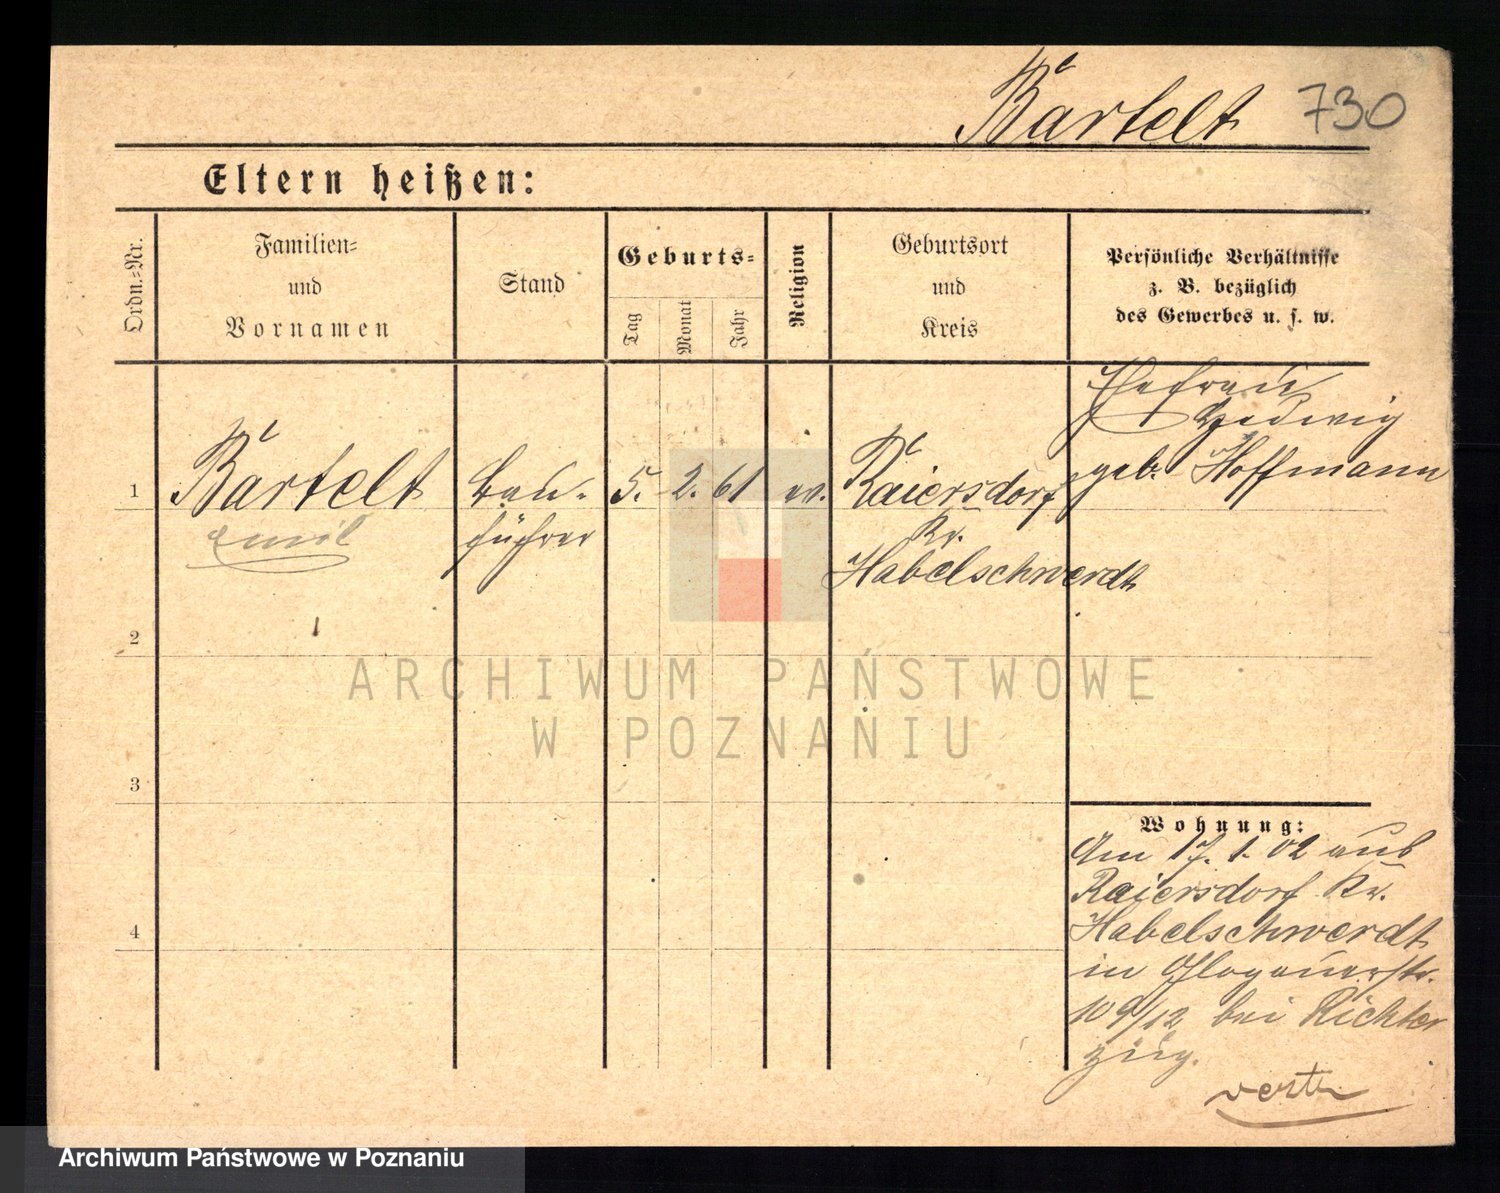 Bartelt 730
Eltern heißen:
Ordn.-Nr.
Familien-
und
Vornamen
Stand
Geburts-
Tag
Monat
Jahr
Religion
Geburtsort
und
Kreis
Persönliche Verhältnisse
z. B. bezüglich
des Gewerbes u. s. w.
1
Bartelt
Emil
Bau-
führer
5. 2. 61
ev.
Raiersdorf
Kr.
Habelschwerdt
Ehefrau
Hedwig
geb. Hoffmann
2
3
4
Wohnung:
Am 17. 1. 02 aus
Raiersdorf Kr.
Habelschwerdt
in Glogauerstr.
109/12 bei Richter
zug.
ARCHIWUM PAŃSTWOWE
W POZNANIU
Archiwum Państwowe w Poznaniu